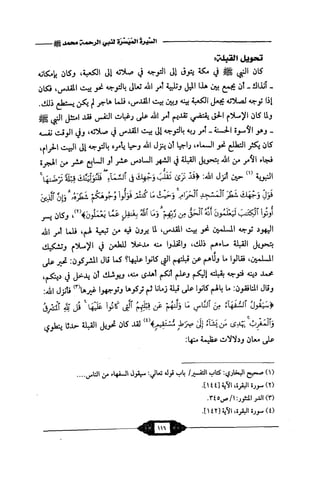 السيرة الميسرة لنبي الرحمة محمد ﷺ
تحويل القبلة:
كان النبي ﷺ في مكة يتوق إلى التوجه في صلاته إلى الكعبة، وكان بإمكانه
- آنذاك - أن يجمع بين هذا الميل وتلبية أمر الله تعالى بالتوجه نحو بيت المقدس، فكان
إذا توجه لصلاته يجعل الكعبة بينه وبين بيت المقدس، فلما هاجر لم يكن يستطع ذلك.
ولما كان الإسلام الحق يقتضي تقديم أمر الله على رغبات النفس فقد امتثل النبي ﷺ
- وهو الأسوة الحسنة - أمر ربه بالتوجه إلى بيت المقدس في صلاته، وفي الوقت نفسه
كان يكثر التطلع نحو السماء، راجيا أن ينزل الله وحيا يأمره بالتوجه إلى البيت الحرام،
فجاء الأمر من الله بتحويل القبلة في الشهر السادس عشر أو السابع عشر من الهجرة
النبوية (١) حين أنزل الله: ﴿قَدْ نَرَى تَقَلُّبَ وَجْهِكَ فِي السَّمَاءِ فَلَنُوَلِّيَنَّكَ قِبْلَةً تَرْضَاهَا
فَوَلِّ وَجْهَكَ شَطْرَ الْمَسْجِدِ الْحَرَامِ وَحَيْثُ مَا كُنتُمْ فَوَلُّوا وُجُوهَكُمْ شَطْرَهُ وَإِنَّ الَّذِينَ
أُوتُوا الْكِتَابَ لَيَعْلَمُونَ أَنَّهُ الْحَقُّ مِن رَّبِّهِمْ وَمَا اللَّهُ بِغَافِلٍ عَمَّا يَعْمَلُونَ﴾(٢)، وكان يسر
اليهود توجه المسلمين نحو بيت المقدس، لما يرون فيه من تبعية لهم، فلما أمر الله
بتحويل القبلة ساءهم ذلك، واتخذوا منه مدخلا للطعن في الإسلام وتشكيك
المسلمين، فقالوا ما ولّاهم عن قبلتهم التي كانوا عليها؟ كما قال المشركون: تحير على
محمد دينه فتوجه بقبلته إليكم وعلم أنكم أهدى منه، ويوشك أن يدخل في دينكم،
وقال المنافقون: ما بالهم كانوا على قبلة زمانا ثم تركوها وتوجهوا غيرها(٣) فأنزل الله:
﴿سَيَقُولُ السُّفَهَاءُ مِنَ النَّاسِ مَا وَلَّاهُمْ عَن قِبْلَتِهِمُ الَّتِي كَانُوا عَلَيْهَا قُل لِّلَّهِ الْمَشْرِقُ
وَالْمَغْرِبُ يَهْدِي مَن يَشَاءُ إِلَى صِرَاطٍ مُّسْتَقِيمٍ﴾(٤) لقد كان تحويل القبلة حدثا ينطوي
على معان ودلالات عظيمة منها:
(١) صحيح البخاري: كتاب التفسير/ باب قوله تعالى: سيقول السفهاء من الناس....
(٢) سورة البقرة، الآية [١٤٤].
(٣) الدر المنثور: ١/ ص٣٤٥.
(٤) سورة البقرة، الآية [١٤٢].
١١٦